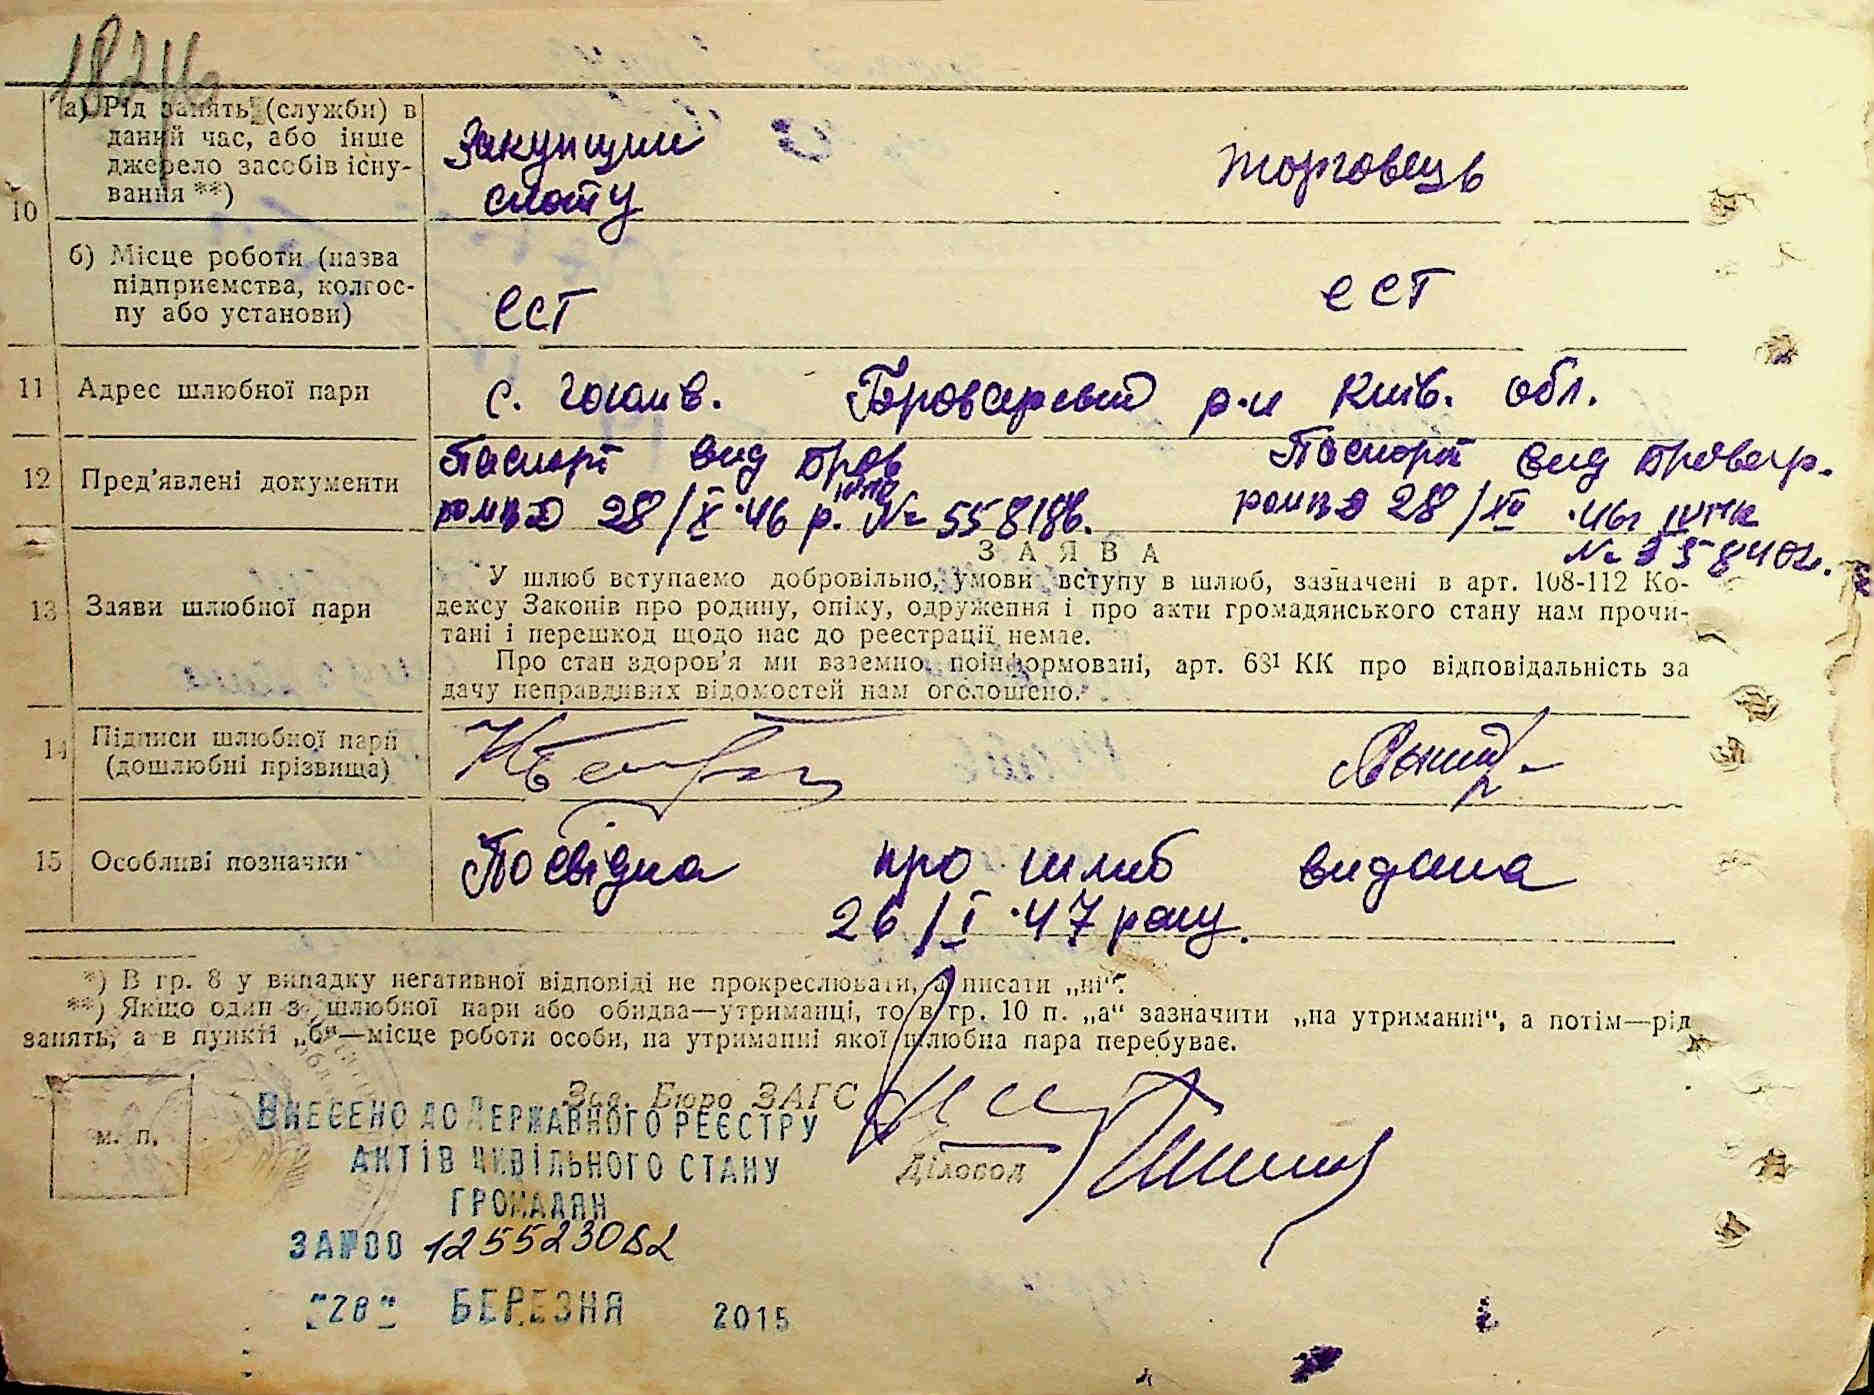 а) Рід занять (служби) в
даний час, або інше
джерело засобів існу-
вання **)
Закупщик
скоту
торговець
10
б) Місце роботи (назва
підприємства, колгос-
пу або установи)
ССТ
ССТ
11 Адрес шлюбної пари
с. Гоголів. Броварський р-н Київ. обл.
12 Пред'явлені документи
Паспорт вид Бров
28/X-46 р. № 558186.
Паспорт вид Бровар.
28/XII-46
З А Я В А
13 Заяви шлюбної пари
У шлюб вступаємо добровільно, умови вступу в шлюб, зазначені в арт. 108-112 Ко-
дексу Законів про родину, опіку, одруження і про акти громадянського стану нам прочи-
тані і перешкод щодо нас до реєстрації немає.
Про стан здоров'я ми взаємно поінформовані, арт. 68¹ КК про відповідальність за
дачу неправдивих відомостей нам оголошено.
14 Підписи шлюбної пари
(дошлюбні прізвища)
15 Особливі позначки
Посвідка про шлюб видана
26/I-47 року.
*) В гр. 8 у випадку негативної відповіді не прокреслювати, а писати „ні“.
**) Якщо один з шлюбної пари або обидва—утриманці, то в гр. 10 п. „а“ зазначити „на утриманні“, а потім—рід
занять, а в пункті „б“—місце роботи особи, на утриманні якої шлюбна пара перебуває.
Зав. Бюро ЗАГС
м. п.
Діловод
ВНЕСЕНО ДО ДЕРЖАВНОГО РЕЄСТРУ
АКТІВ ЦИВІЛЬНОГО СТАНУ
ГРОМАДЯН
ЗА №00 125523082
"28" БЕРЕЗНЯ 2015